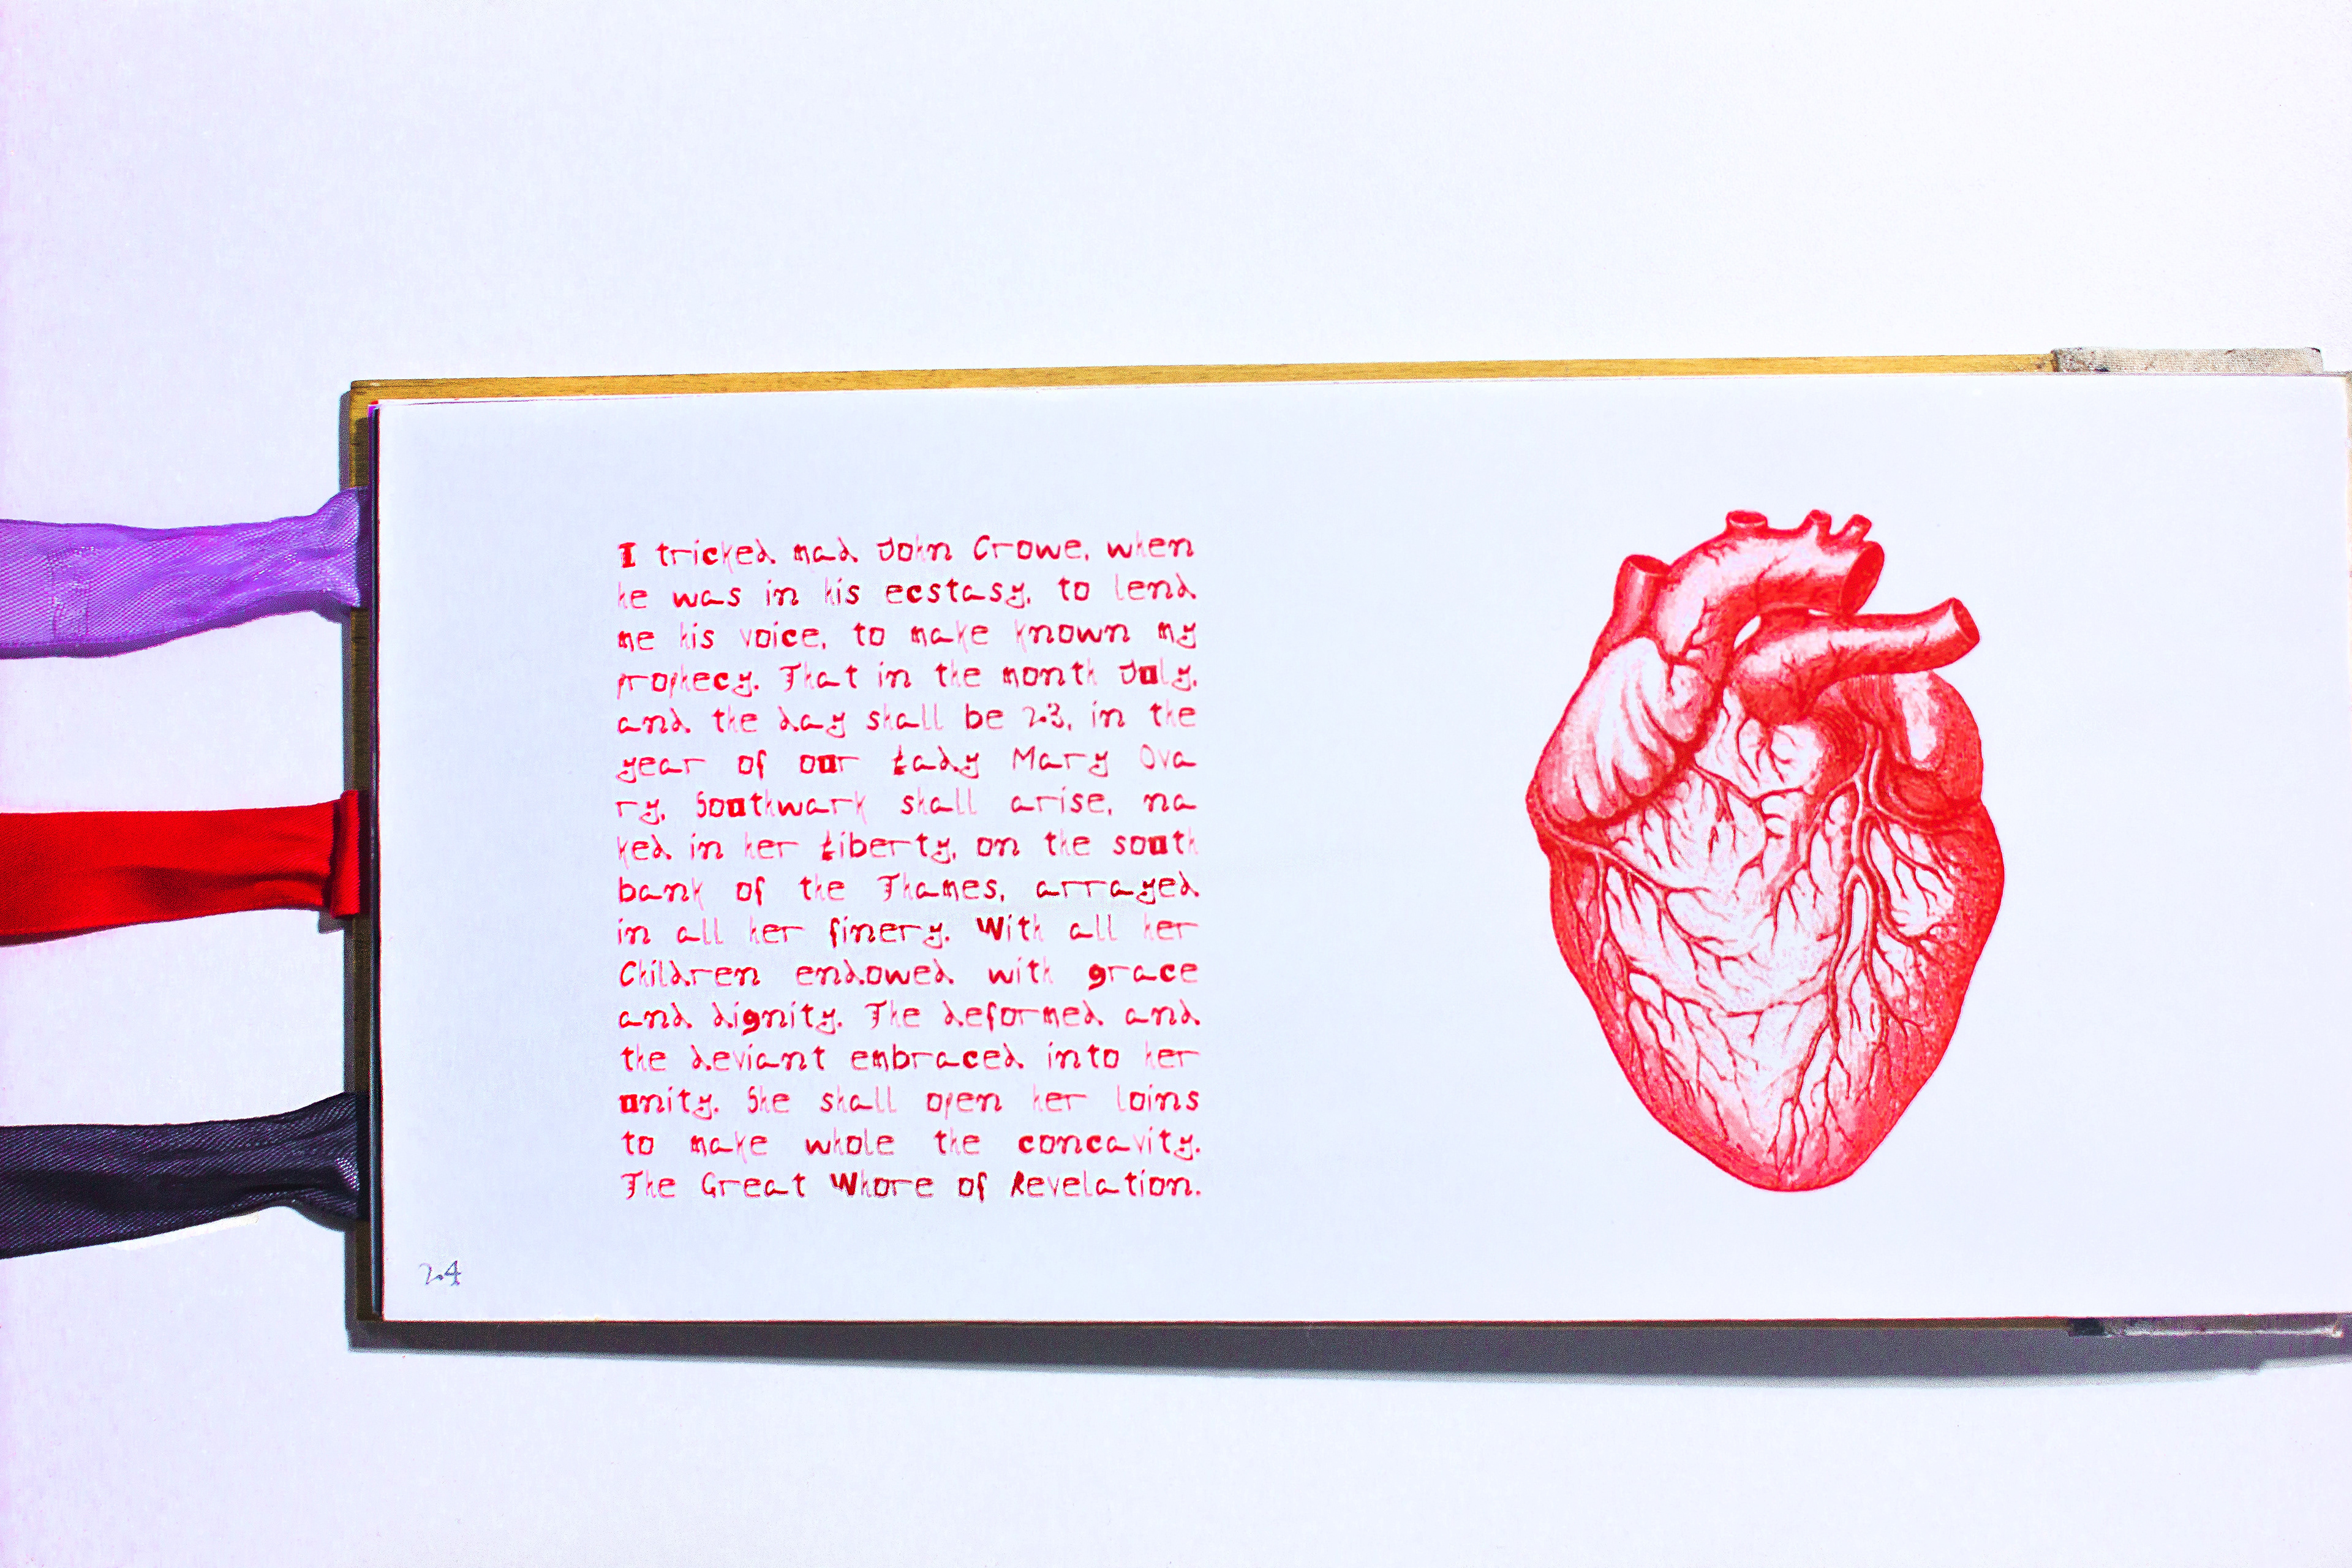 I tricked mad John Crowe, when
he was in his ecstasy, to lend
me his voice, to make known my
prophecy. That in the month July,
and the day shall be 23, in the
year of our Lady Mary Ova
ry, Southwark shall arise, na
ked in her Liberty, on the south
bank of the Thames, arrayed
in all her finery. With all her
Children endowed with grace
and dignity. The deformed and
the deviant embraced into her
unity. She shall open her loins
to make whole the concavity.
The Great Whore of Revelation.
24